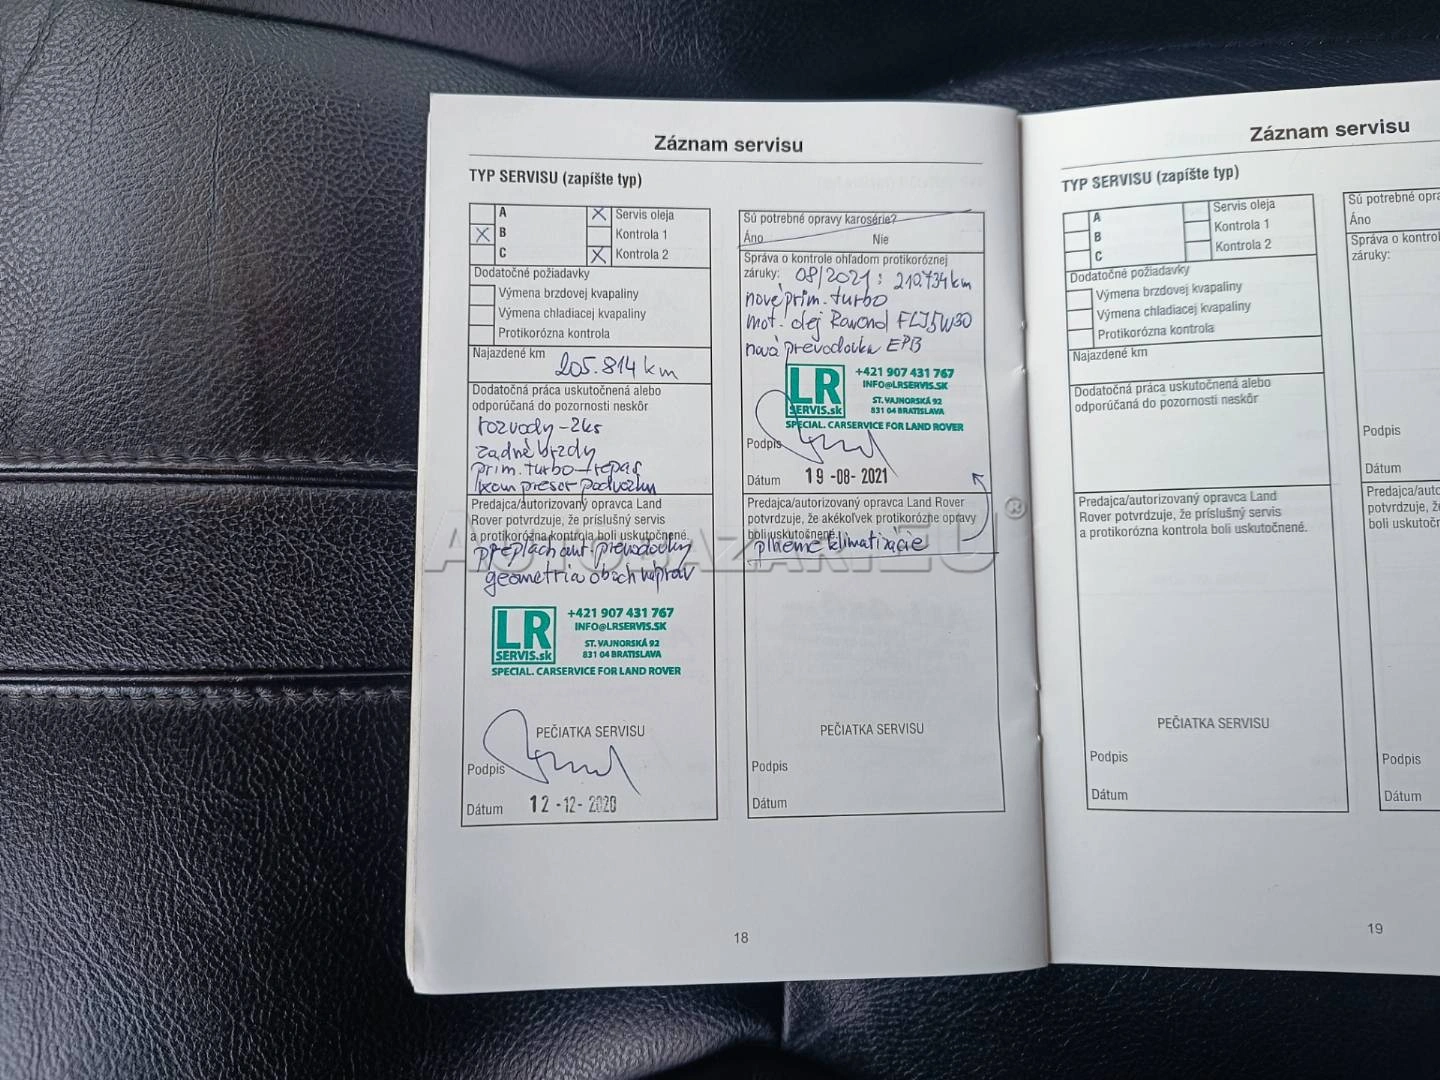 Záznam servisu
TYP SERVISU (zapíšte typ)
A
B
C
Servis oleja
Kontrola 1
Kontrola 2
Dodatočné požiadavky
Výmena brzdovej kvapaliny
Výmena chladiacej kvapaliny
Protikorózna kontrola
Najazdené km 205.814 km
Dodatočná práca uskutočnená alebo
odporúčaná do pozornosti neskôr
rozvody - 2ks
zadné brzdy
prim. turbo - repas
kompresor podvozku
Predajca/autorizovaný opravca Land
Rover potvrdzuje, že príslušný servis
a protikorózna kontrola boli uskutočnené.
preplach aut. prevodovky
geometria oboch náprav
LR
SERVIS.sk
+421 907 431 767
INFO@LRSERVIS.SK
ST. VAJNORSKÁ 92
831 04 BRATISLAVA
SPECIAL. CARSERVICE FOR LAND ROVER
PEČIATKA SERVISU
Podpis
Dátum 12 -12- 2020
Sú potrebné opravy karosérie?
Áno Nie
Správa o kontrole ohľadom protikoróznej
záruky: 08/2021: 210.734 km
nové prim. turbo
mot. olej Ravenol FLJ5W30
nová prevodovka EPB
LR
SERVIS.sk
+421 907 431 767
INFO@LRSERVIS.SK
ST. VAJNORSKÁ 92
831 04 BRATISLAVA
SPECIAL. CARSERVICE FOR LAND ROVER
Podpis
Dátum 19 -08- 2021
Predajca/autorizovaný opravca Land Rover
potvrdzuje, že akékoľvek protikorózne opravy
boli uskutočnené.
plnenie klimatizácie
PEČIATKA SERVISU
Podpis
Dátum
18
Záznam servisu
TYP SERVISU (zapíšte typ)
A
B
C
Servis oleja
Kontrola 1
Kontrola 2
Dodatočné požiadavky
Výmena brzdovej kvapaliny
Výmena chladiacej kvapaliny
Protikorózna kontrola
Najazdené km
Dodatočná práca uskutočnená alebo
odporúčaná do pozornosti neskôr
Predajca/autorizovaný opravca Land
Rover potvrdzuje, že príslušný servis
a protikorózna kontrola boli uskutočnené.
PEČIATKA SERVISU
Podpis
Dátum
Sú potrebné opra
Áno
Správa o kontrol
záruky:
Podpis
Dátum
Predajca/autoriz
potvrdzuje, ž
boli uskutočn
Podpis
Dátum
19
AUTOBAZAR.EU®